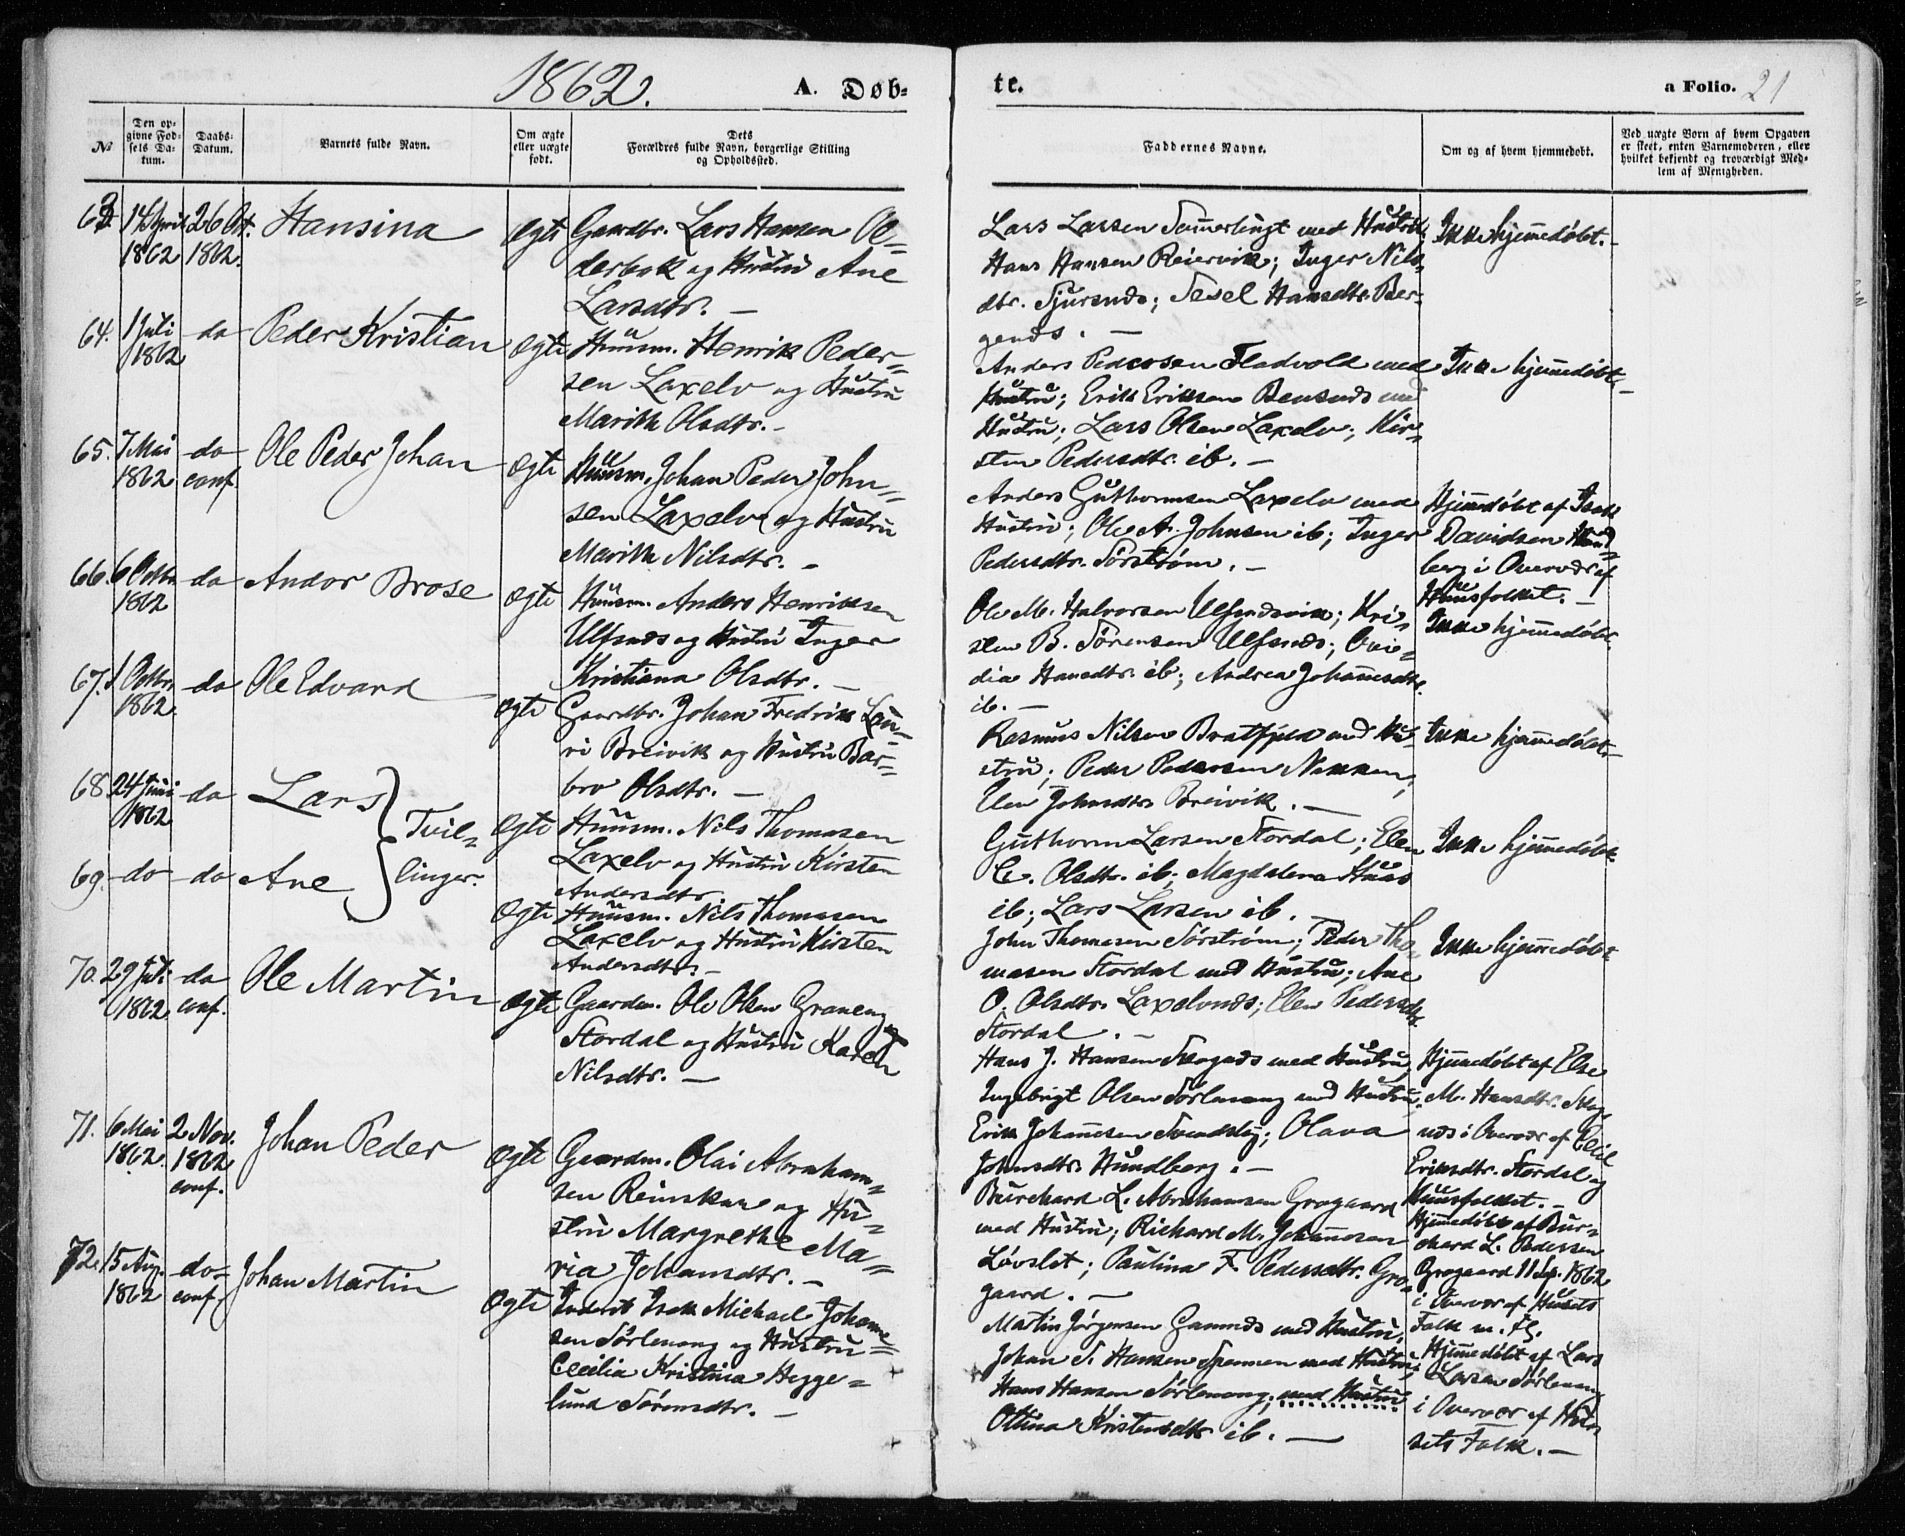 1862.
A. Døb-
te.
a Folio. 21
No
Den op-
givne Fød-
sels Da-
tum.
Daabs-
Datum.
Barnets fulde Navn.
Om ægte
eller uægte
født.
Dets
Forældres fulde Navn, borgerlige Stilling
og Opholdssted.
Faddernes Navne.
Om og af hvem hjemmedøbt.
Ved uægte Børn af hvem Opgaven
er skeet, enten Barnemoderen, eller
hvilket bekjendt og troværdigt Med-
lem af Menigheden.
63. 14 April 1862
26 Oct. 1862.
Hansina
Ægte
Gaardbr. Lars Hansen Ol-
derbak og Hustru Ane
Larsdtr. —
Lars Larsen Sommerlingt med Hustru;
Hans Hansen Reiervik; Inger Nils-
dtr. Sjursnæs; Sesel Hansdtr. Ber-
genæs. —
Ikke hjemmedøbt. —
64. 1 Juli 1862
do
Peder Kristian
Ægte
Huusm. Henrik Peder-
sen Laxelv og Hustru
Marith Olsdtr. —
Anders Pedersen Fladvold med
Hustru; Erik Eriksen Bensnæs med
Hustru; Lars Olsen Laxelv; Kir-
sten Pedersdtr. ib. —
Ikke hjemmedøbt. —
65. 7 Mai 1862
do conf.
Ole Peder Johan
Ægte
Huusm. Johan Peder John-
sen Laxelv og Hustru
Marith Nilsdtr. —
Anders Guthormsen Laxelv med
Hustru; Ole A. Johnsen ib; Inger
Pedersdtr. Sørstrøm. —
Hjemmedøbt af Isak
Davidsen Hund-
berg i Overvær af
Huusfolket. —
66. 6 Octbr. 1862
do
Andor Brose
Ægte
Huusm. Anders Henriksen
Ulfsnæs og Hustru Inger
Kristiana Olsdtr. —
Ole M. Halvorsen Ulfsnæsvik; Kri-
sten B. Sørensen Ulfsnæs; Ovi-
dia Hansdtr. ib; Andrea Johannesdtr.
ib. —
Ikke hjemmedøbt.
67. 1 Octbr. 1862.
do
Ole Edvard
Ægte
Gaardbr. Johan Fredrik Lau-
ri Breivik og Hustru Bar-
bro Olsdtr. —
Rasmus Nilsen Bratfjeld med Hu-
stru; Peder Pedersen Nakken;
Elen Johnsdtr. Breivik. —
Ikke hjemmedøbt —
68 24 Juni 1862
do
Lars
Tvil-
linger.
Ægte
Huusm. Nils Thomasen
Laxelv og Hustru Kirsten
Andersdtr.
Guthorm Larsen Stordal; Elen
C. Olsdtr. ib; Magdalena Huus
ib; Lars Larsen ib. —
Ikke hjemmedøbt.
69. do
do
Ane
Ægte
Huusm. Nils Thomasen
Laxelv og Hustru Kirsten
Andersdtr. —
John Thomasen Sørstrøm; Peder Tho-
masen Stordal med Hustru; Ane
O. Olsdtr. Laxelvnæs; Elen Pedersdtr.
Stordal. —
Ikke hjemmedøbt
70. 29 Juli 1862
do conf.
Ole Martin
Ægte
Gaardm. Ole Olsen Graneng
Stordal og Hustru Karen
Nilsdtr. —
Hans J. Hansen Skognæs med Hustru;
Ingebrigt Olsen Sørlenang med Hustru.
Erik Johannesen Svendsby; Olava
Johnsdtr. Hundberg. —
Hjemmedøbt af Else
M. Hansdtr. Skog-
næs i Overvær af Cecil
Eriksdtr. Stordal og
Huusfolket. —
71. 6 Mai 1862.
2 Nov. 1862 conf.
Johan Peder
Ægte
Gaardm. Olai Abraham-
sen Reinskar og Hu-
stru Margrethe Ma-
ria Johansdtr. —
Burchard L. Abrahamsen Grøgaard
med Hustru; Richard M. Johannesen
Løvslet; Paulina F. Pedersdtr. Grø-
gaard. —
Hjemmedøbt af Bur-
chard L. Pedersen
Grøgaard 11 Sep. 1862
i Overvær af Husets
Folk m. Fl.
72. 15 Aug. 1862
do- conf.
Johan Martin
Ægte
Inderst Isak Michael Johanne-
sen Sørlenang og Hustru
Cecilia Kristina Hegge-
lund Sørensdtr. —
Martin Jørgensen Gamnæs med Hustru;
Johan S. Hansen Spaanen med Hustru;
Hans Hansen Sørlenang; med Hustru
Othina Kristensdtr. ib. —
Hjemmedøbt af Lars
Larsen Sørlenang
i Overvær af Hu-
sets Folk. —